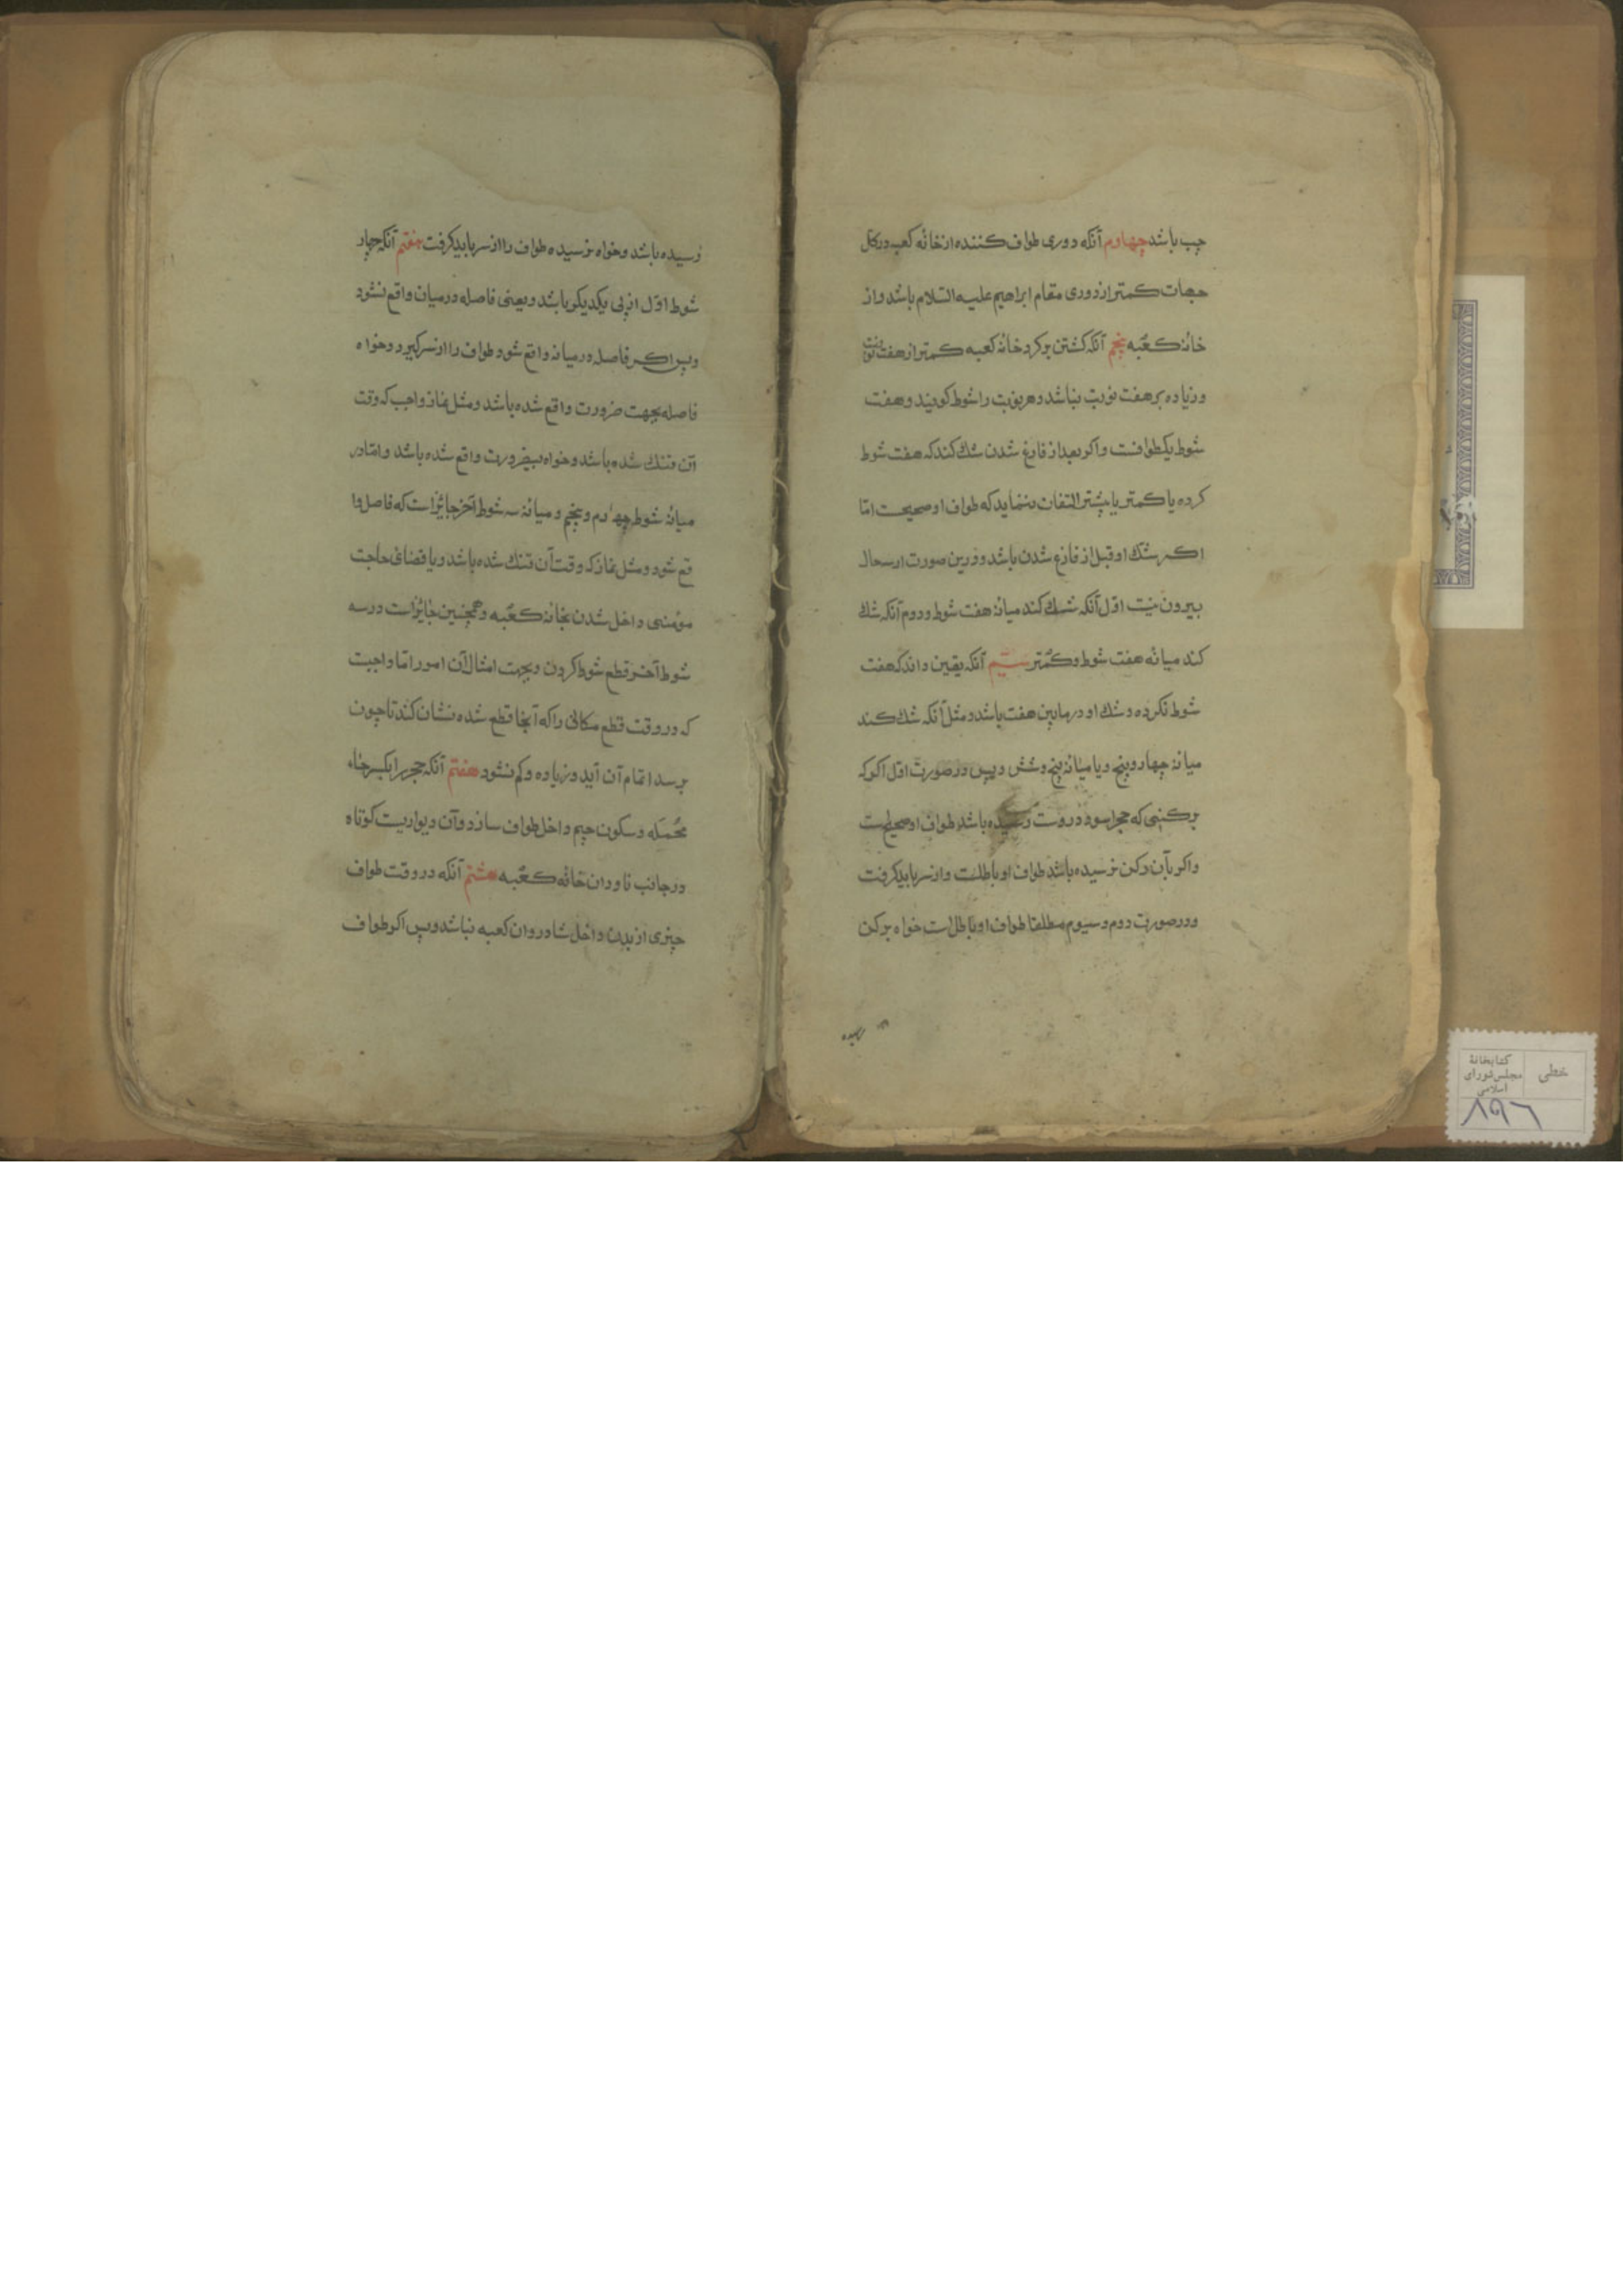 چپ باشد چهارم آنکه دوری طواف کننده از خانه کعبه در کل
جهات کمتر از دوری مقام ابراهیم علیه السلام باشد و از
خانه کعبه پنجم آنکه کشتن بر کرد خانه کعبه کمتر از هفت نوبت
و زیاده بر هفت نوبت نباشد و هر نوبت را شوط کویند و هفت
شوط یکطوافست و اکر بعد از فارغ شدن شک کند که هفت شوط
کرده یا کمتر یا بیشتر التفات ننماید که طواف او صحیحست امّا
اکر شک او قبل از فارغ شدن باشد و درین صورت از سه حال
بیرون نیست اوّل آنکه شک کند میانه هفت شوط و دوم آنکه شک
کند میانه هفت شوط و کمتر سیّم آنکه یقین داند که هفت
شوط نکرده و شک او در مابین هفت باشد و مثل آنکه شک کند
میانه چهار و پنج و یا میانه پنج و شش و پس در صورت اوّل اکر که
برکنی که حجر اسود دروست رسیده باشد طواف او صحیحست
و اکر بآن رکن نرسیده باشد طواف او باطلست و از سر باید کرفت
و در صورت دوم و سیوم مطلقا طواف او باطل است خواه برکن
رسیده
رسیده باشد و خواه نرسیده طواف را از سر باید کرفت هفتم آنکه چهار
شوط اوّل از پی یکدیکر باشد و یعنی فاصله در میان واقع نشود
و پس اکر فاصله در میانه واقع شود طواف را از سر کیرد و خواه
فاصله بجهت ضرورت واقع شده باشد و مثل نماز واجب که وقت
آن تنک شده باشد و خواه بیضرورت واقع شده باشد و امّا در
میانه شوط چهارم و پنجم و میانه سه شوط آخر جایز است که فاصل وا
قع شود و مثل نماز که وقت آن تنک شده باشد و یا قضای حاجت
مؤمنی داخل شدن بخانه کعبه و همچنین جایز است در سه
شوط آخر قطع شوط کردن و بجهت امثال آن امور امّا واجبست
که در وقت قطع مکانی را که آنجا قطع شده نشان کند تا چون
بر سد اتمام آن آید و زیاده و کم نشود هفتم آنکه حجر را بکسر حاء
مُهمَله و سکون جیم داخل طواف سازد و آن دیواریست کوتاه
در جانب ناودان خانه کعبه هشتم آنکه در وقت طواف
چیزی از بدن داخل شادروان کعبه نباشد و پس اکر طواف
خطی
کتابخانهٔ
مجلس شورای
اسلامی
۸۹۶